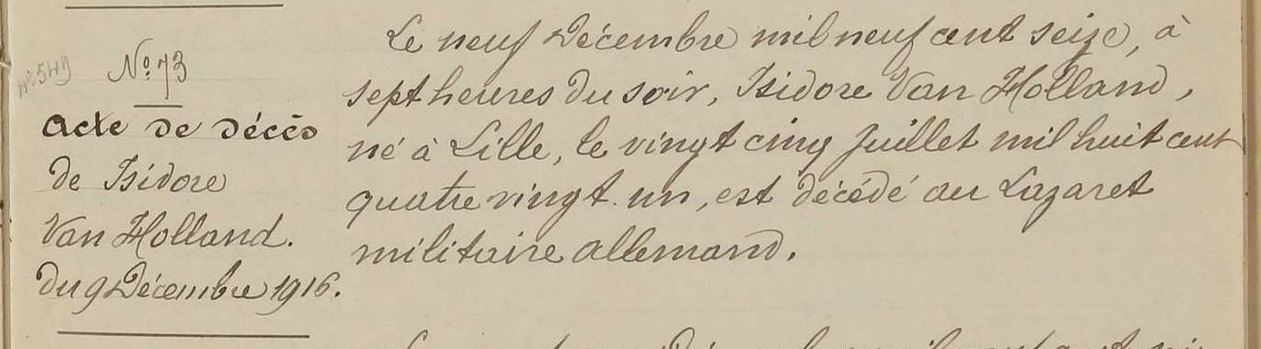 nº 549
Nº 73
Acte de décès
de Isidore
Van Holland.
du 9 Décembre 1916.
Le neuf Décembre mil neuf cent seize, à
sept heures du soir, Isidore Van Holland,
né à Lille, le vingt cinq Juillet mil huit cent
quatre vingt. un, est décédé au Lazaret
militaire allemand.